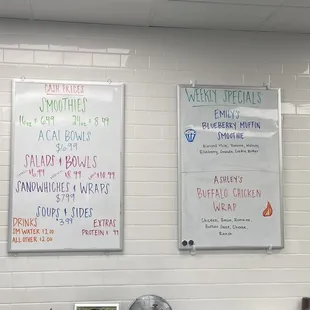 CASH PRICES
SMOOTHIES
16oz 6.49 24oz 8.49
ACAI BOWLS
$6.99
SALADS & BOWLS
SANDWHICHES & WRAPS
$7.99
SOUPS & SIDES
$3.99
DRINKS
SM WATER $2.00
ALL OTHER $2.00
EXTRAS
PROTEIN $.99
WEEKLY SPECIALS
EMILY'S
BLUEBERRY MUFFIN
SMOOTHIE
Almond Milk, Banana, Vanilla,
Blueberry, Granola, Cookie Butter
ASHLEY'S
BUFFALO CHICKEN
WRAP
Chicken, Bacon, Romaine,
Buffalo Sauce, Cheese,
Ranch